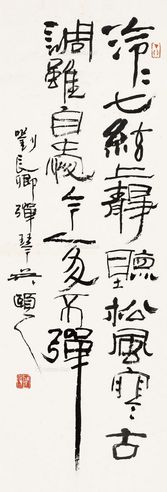 泠〻七絃上靜聽松風寒古
調雖自愛今人多不彈
劉長卿彈琴吳頤人